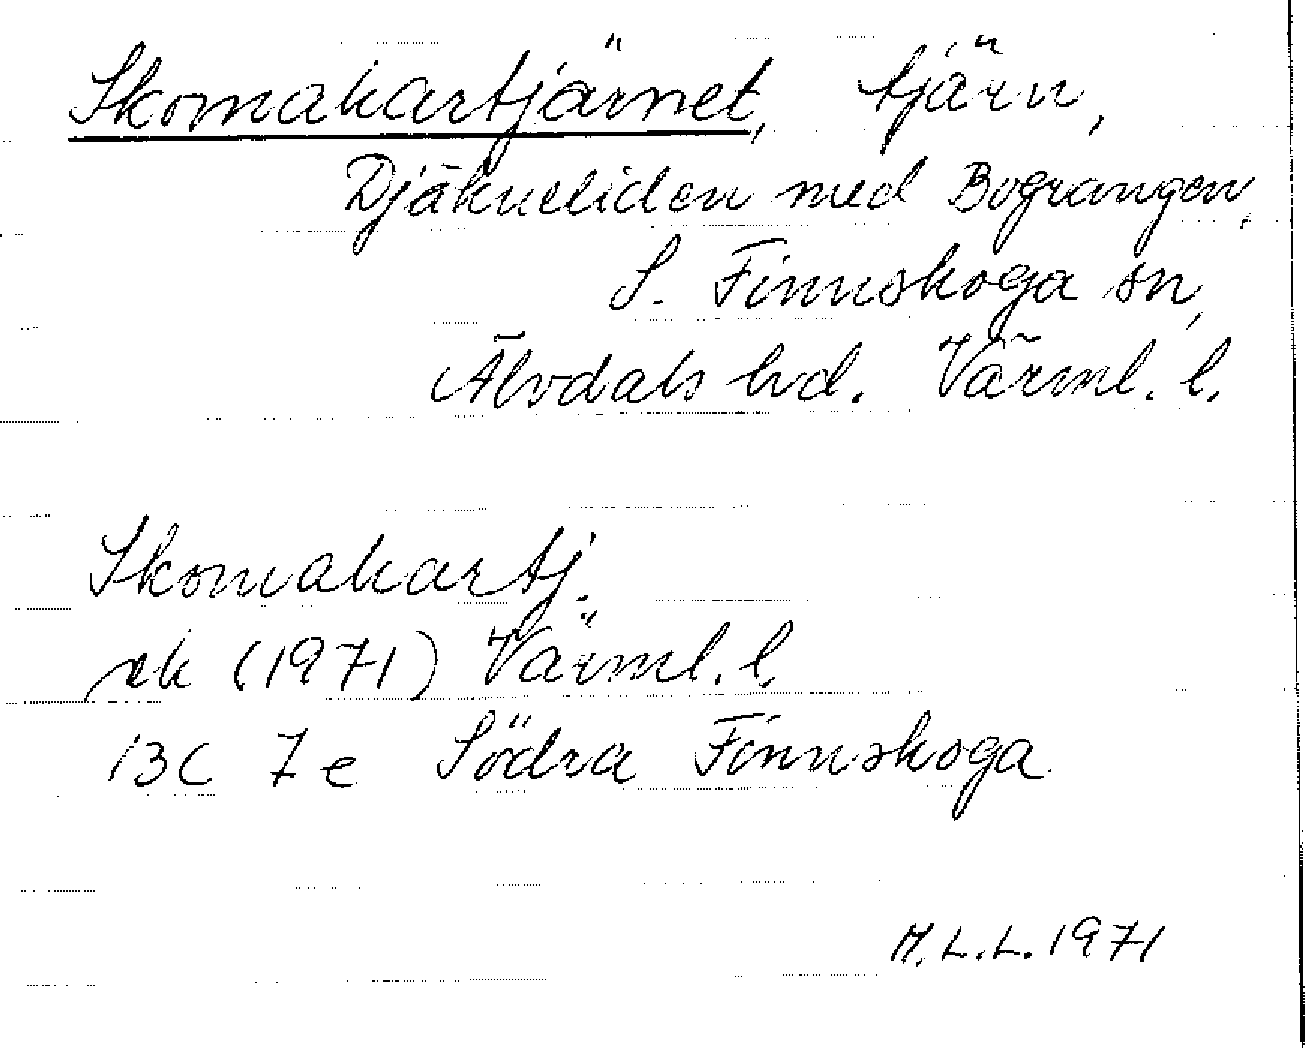 Skomakartjärnet, tjärn,
Djäkneliden med Bograngen,
S. Finnskoga sn,
Älvdals hd. Värml. l.
Skomakartj.
ek (1971) Värml. l.
13C 7e Södra Finnskoga
M.L.L. 1971